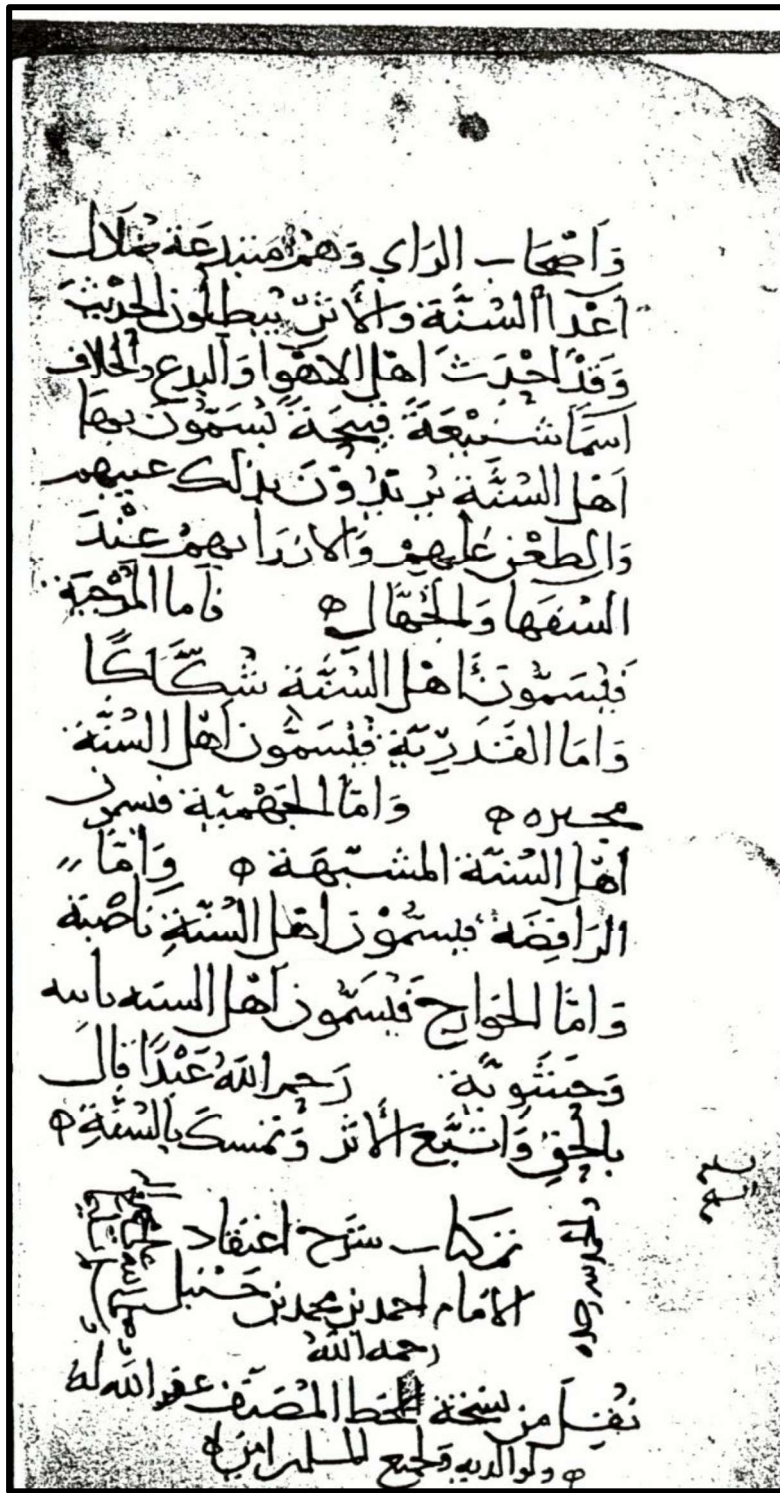 وَاَصْحَاب الرَاي وَهُمْ مبتدعَة ضلَال
اَعْدَا السُنَّة وَالاَثر يُبطلُون الحَدِيثَ
وَقَدْ اَحْدَثَ اَهْل الاَهْوا وَالبدع والخلاف
اسمَا شَنِيْعَةً قبيحَةً يُسَمُّونَ بهَا
اَهْل السُنَّة يُريدُوْنَ بذلك عيبهم
وَالطعْن عَليهِمْ وَالازرَا بهمْ عِنْدَ
السُفهَا وَالجُهَّال ه فاَما المُرْجِية
فيُسَمُّونَ اَهْل السُنَّة شُكَّاكًا
وَامَا القَدَرِيّة فيُسَمُّون اَهْل السُنَّة
مجبره ه وَامَّا الجَهْمِيّة فيسمون
اَهْل السُنّة المشبّهَة ه وَاِمَّا
الرَافِضَه فيسمُّوْن اَهْل السُنّةِ نَاصْبَة
وَامَّا الخوَارِج فيُسَمُّون اَهْل السنه نابته
وَحَشْوِيّة رَحم اللهُ عَبْدًا قال
بالحَقِ وَاتبَّع الاَثر وَتمسكَ بالسُنَّةِ ه
تم كتاب شرح اعتقاد
الامَام احمد بن محمد بن حَنبل
رحمه اللهُ
نُقِلَ من نسْخة بخط المُصَنّف غفر الله لهُ
ه ولوالديه ولجميع المسلمين امين ه